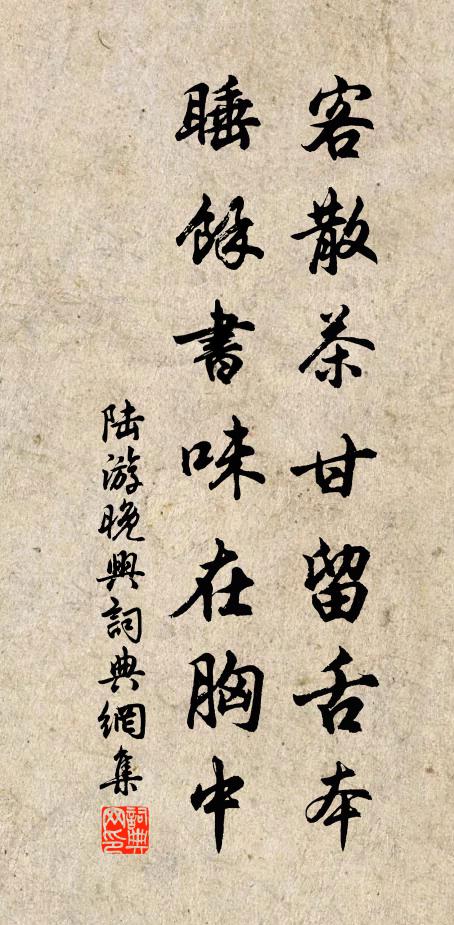 客散茶甘留舌本
睡餘書味在胸中
陸游晚興詞典網集
詞典网印